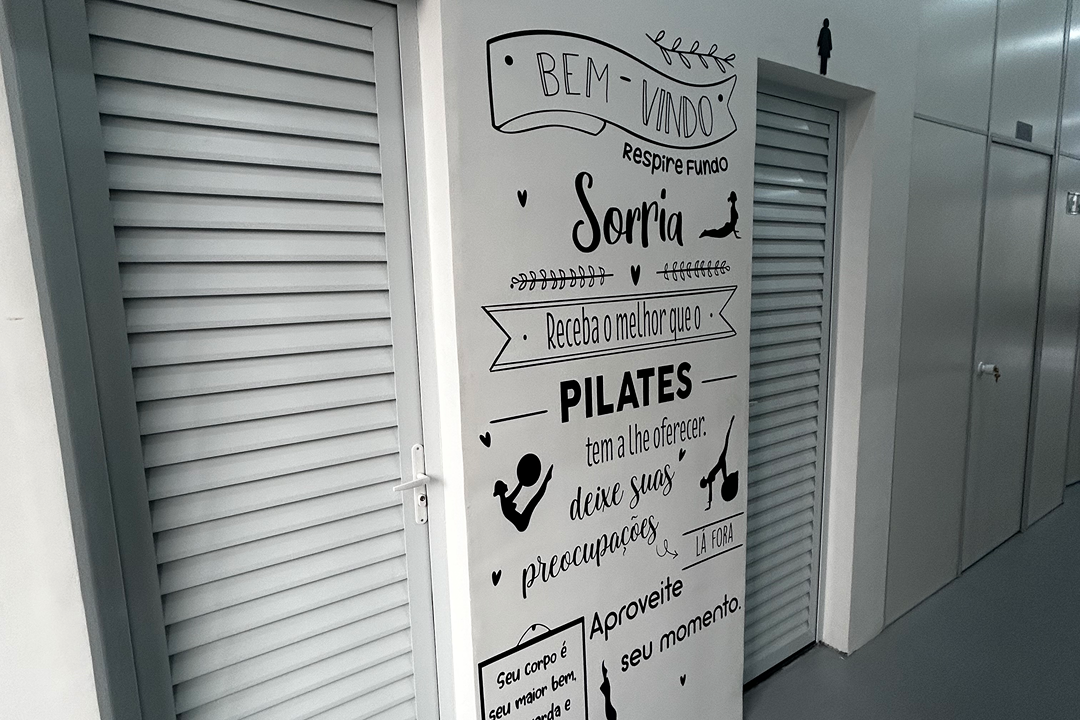 BEM-VINDO
Respire Fundo
Sorria
Receba o melhor que o
PILATES
tem a lhe oferecer.
deixe suas
preocupações
LÁ FORA
Aproveite
seu momento.
Seu corpo é
seu maior bem,
e